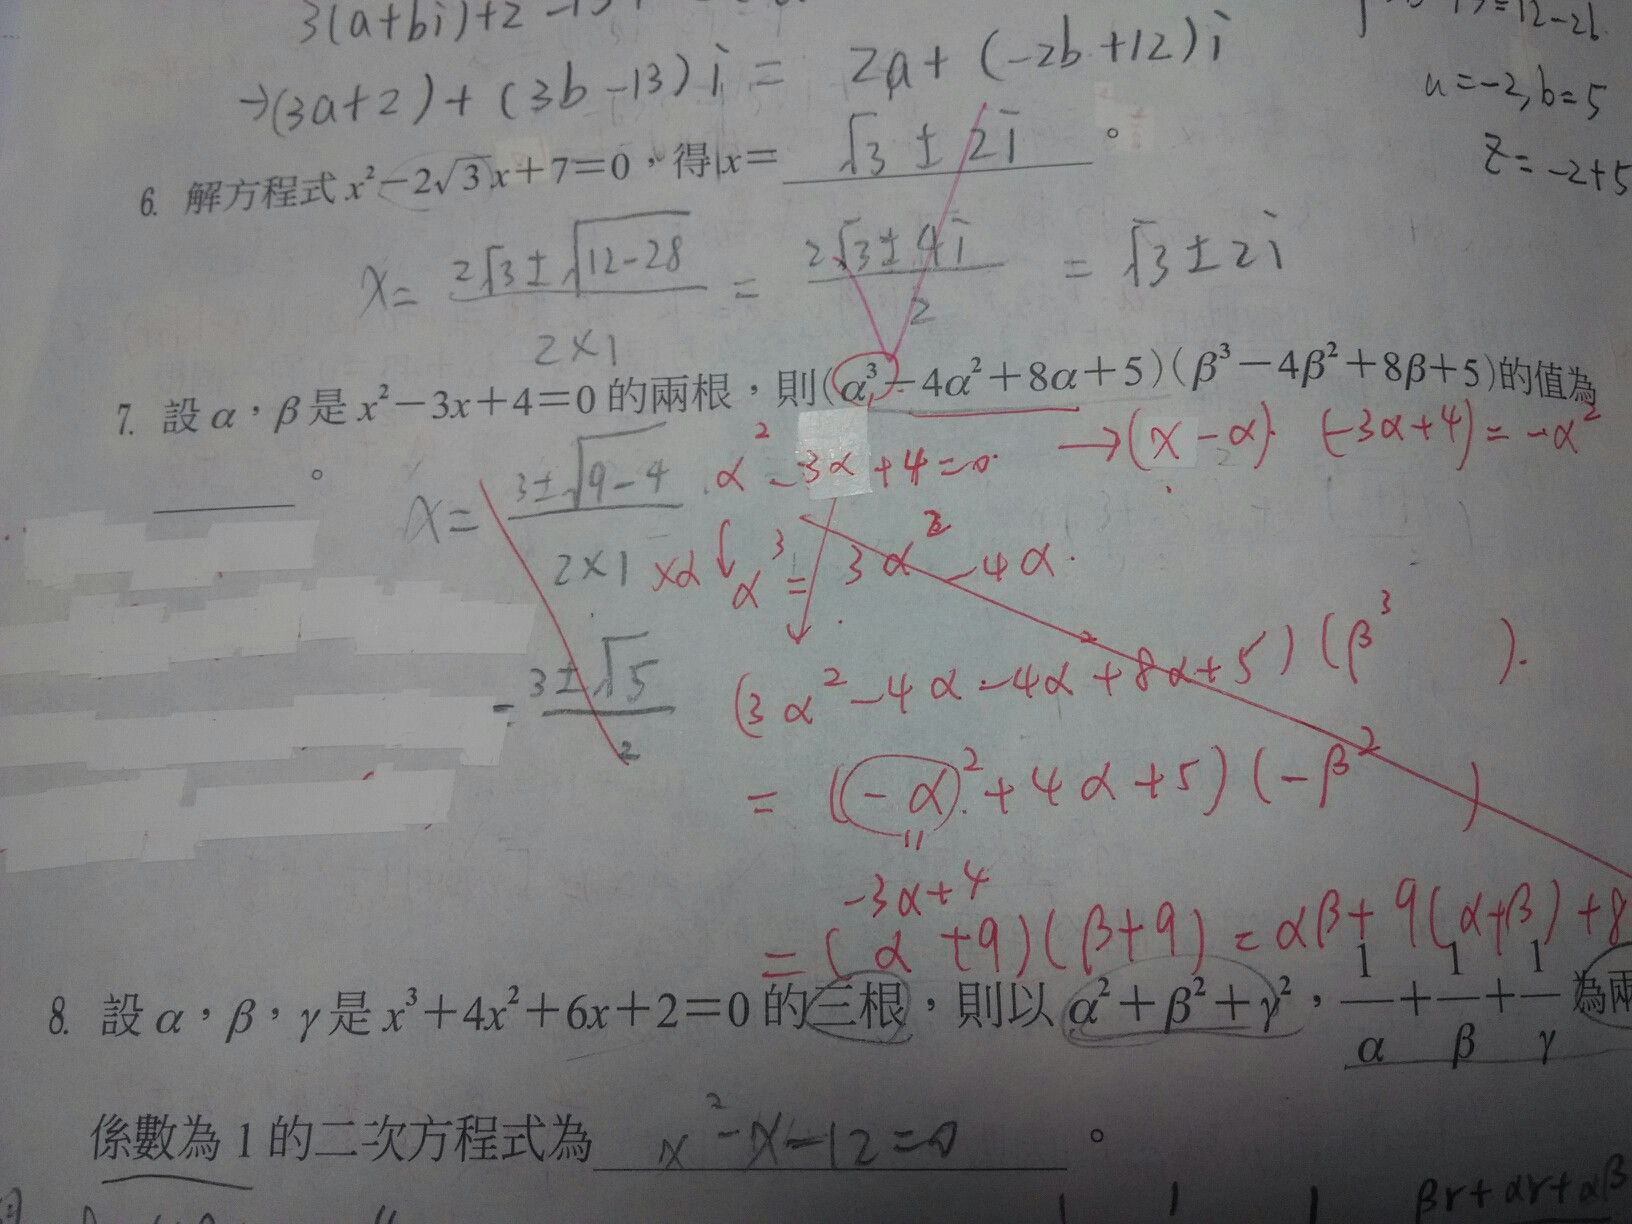 3(a+bi)+2
12-2b
→(3a+2)+(3b-13)i = 2a+(-2b+12)i
a=-2, b=5
z=-2+5
6. 解方程式 x²-2√3x+7=0，得 x= √3 ± 2i 。
x= (2√3±√(12-28))/(2×1) = (2√3±4i)/2 = √3±2i
7. 設 α，β 是 x²-3x+4=0 的兩根，則(α³-4α²+8α+5)(β³-4β²+8β+5)的值為
→(x-α). (-3α+4)=-α²
____。
x= (3±√(9-4))/(2×1)
α²-3α+4=0
×α α³= 3α²-4α.
= (3±√5)/2
(3α²-4α-4α²+8α+5)(β³ ).
= (-α²+4α+5)(-β² )
-3α+4
= (α+9)(β+9) = αβ+9(α+β)+8
8. 設 α，β，γ 是 x³+4x²+6x+2=0 的三根，則以 α²+β²+γ²，1/α+1/β+1/γ 為兩
係數為 1 的二次方程式為 x²-x-12=0 。
βγ+αγ+αβ